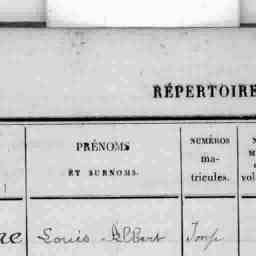 RÉPERTOIRE
PRÉNOMS
ET SURNOMS.
NUMÉROS
ma-
tricules.
Louis Albert